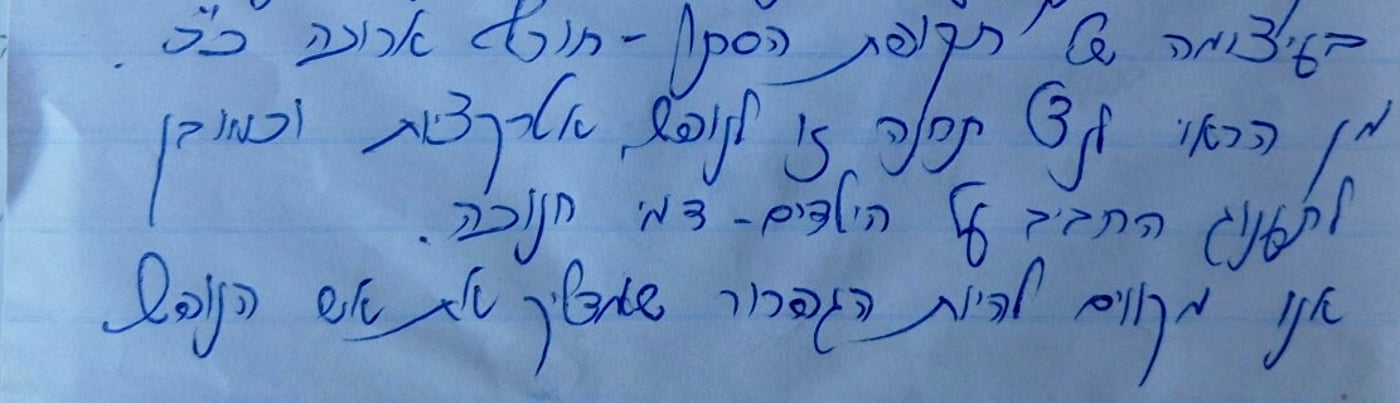 בעיצומה של תקופת הסתיו - חורף ארוכה כ"כ.
מן הראוי לנצל תחנה זו לנופש, אטרקציות וכמובן
לתענוג החביב על הילדים - דמי חנוכה.
אנו מקווים להיות הגפרור שמדליק את אש הנופש